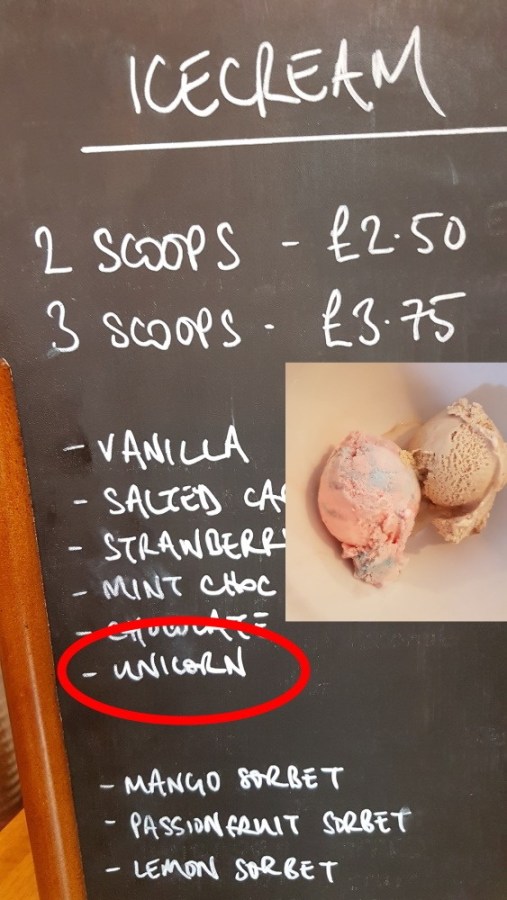 ICECREAM
2 SCOOPS - £2.50
3 SCOOPS - £3.75
- VANILLA
- SALTED
- STRAWBERR
- MINT CHOC
- CHOCOLATE
- UNICORN
- MANGO SORBET
- PASSIONFRUIT SORBET
- LEMON SORBET